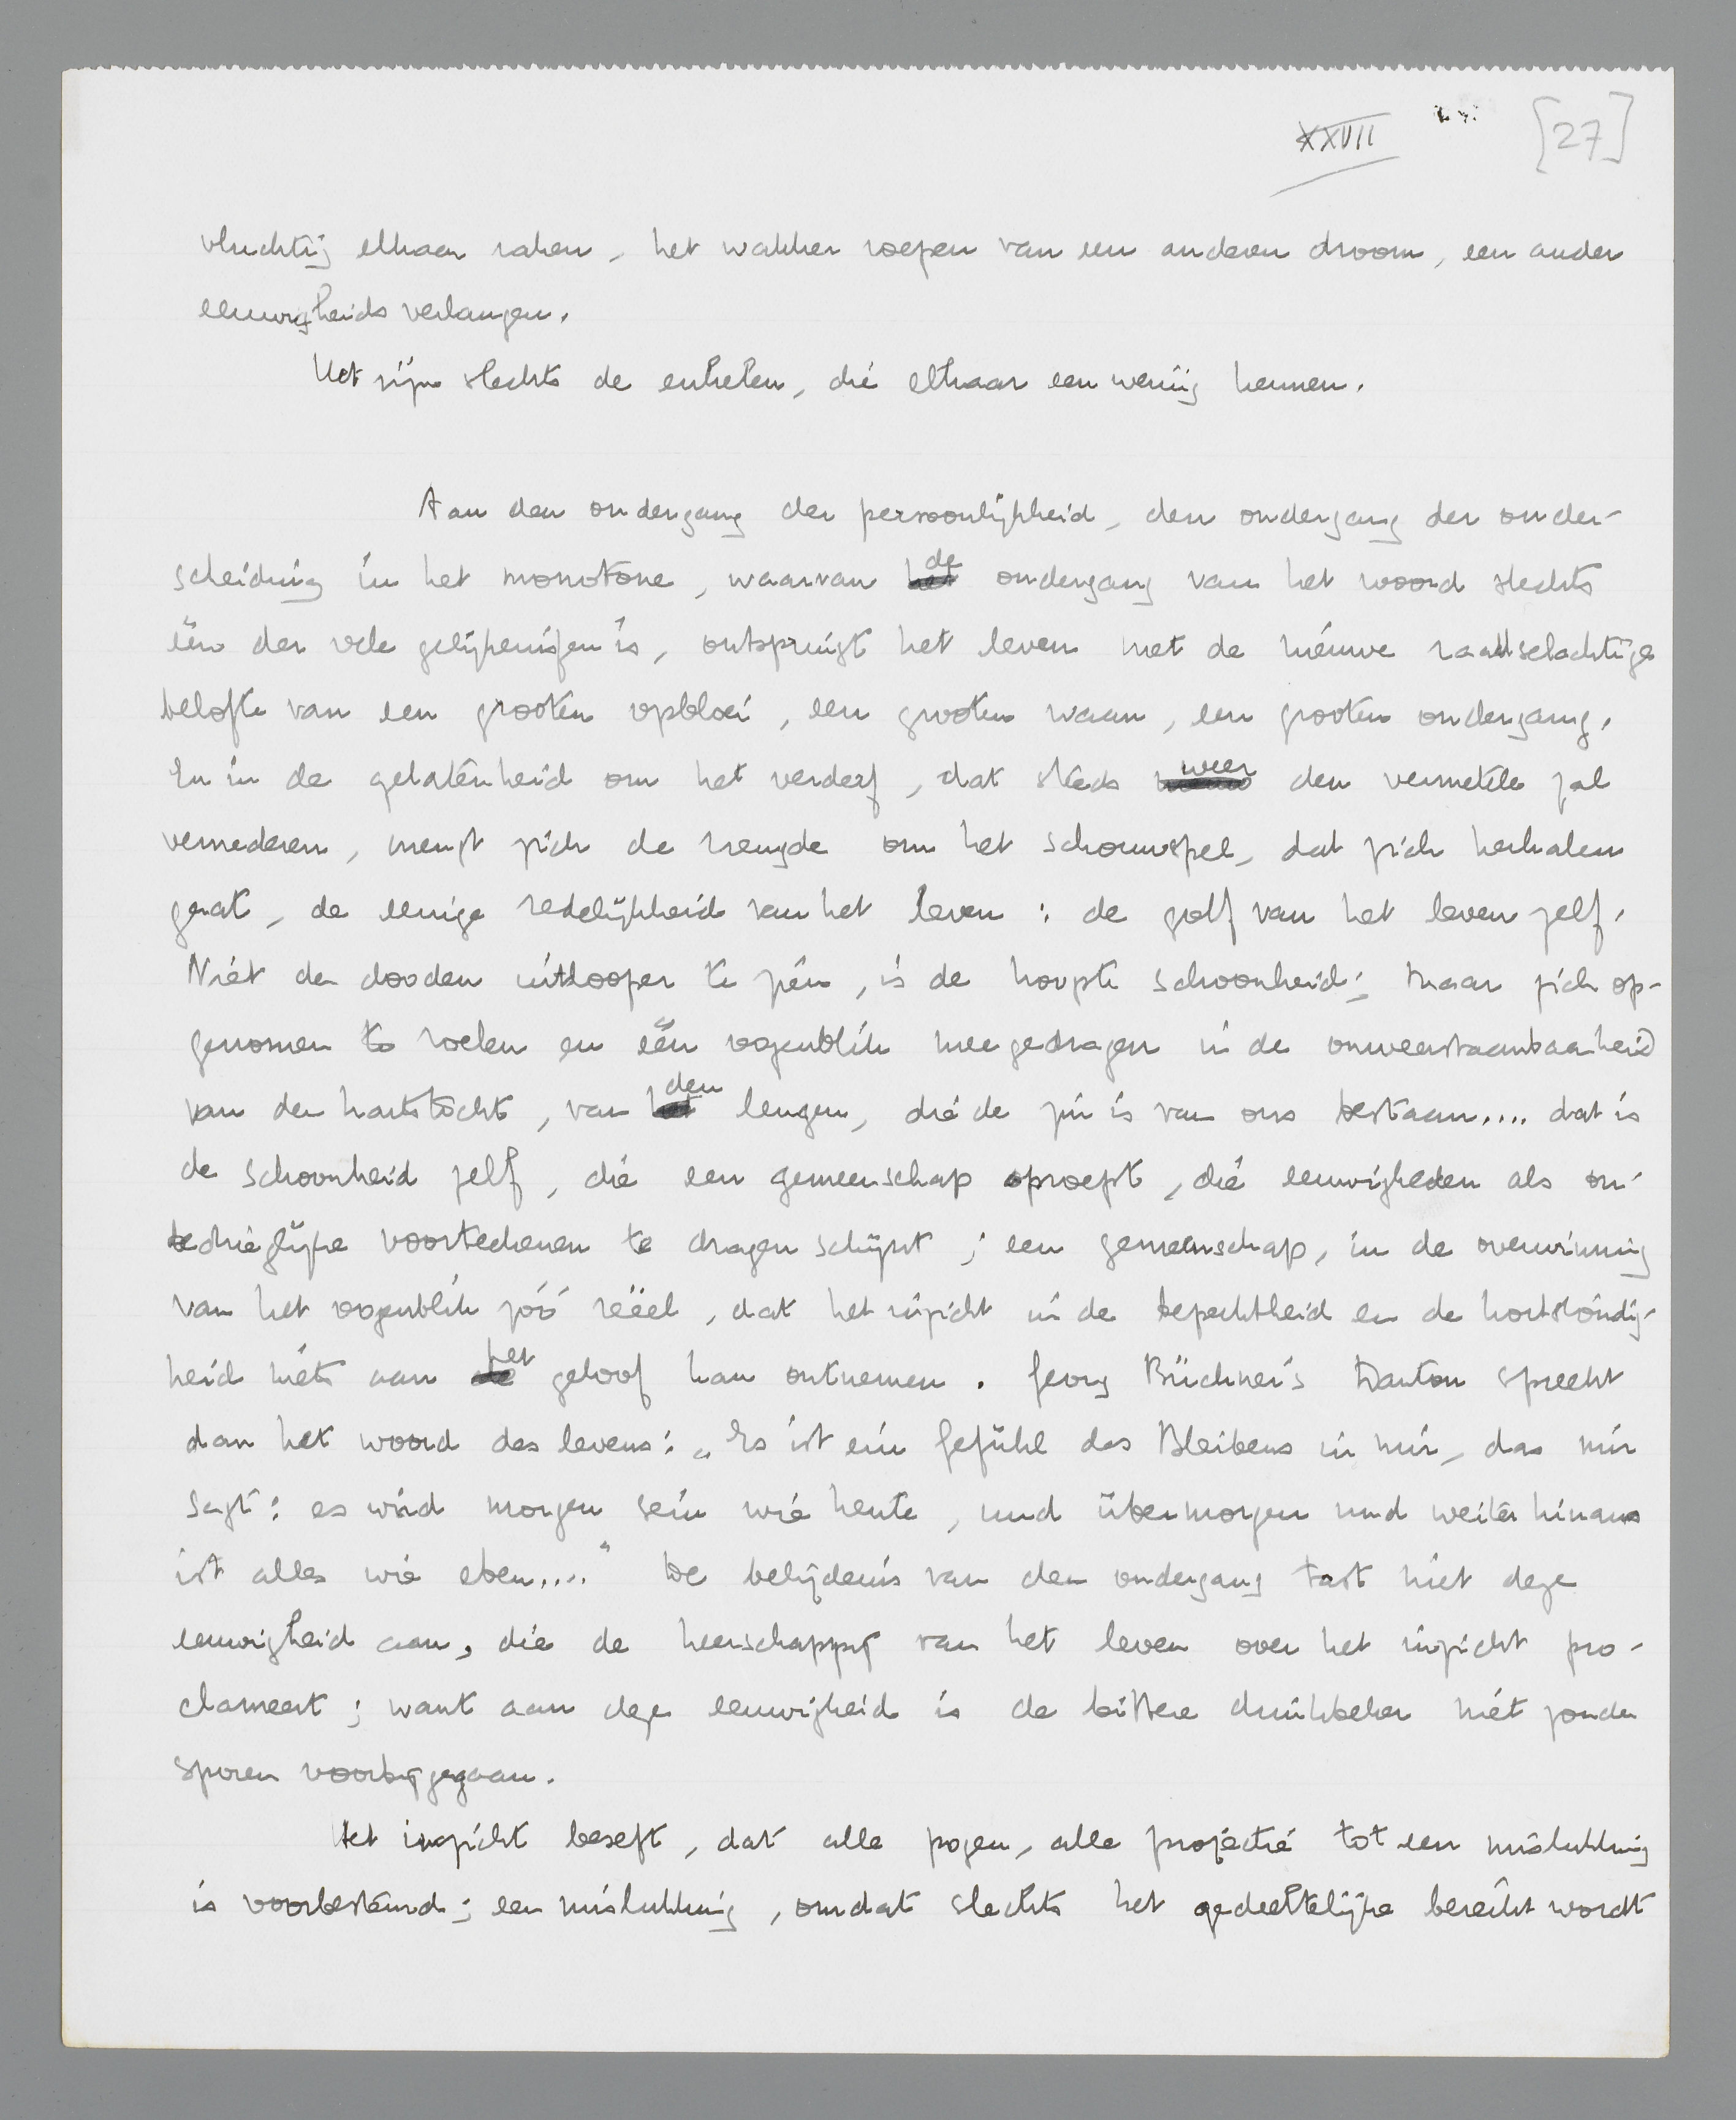 XXVII [27]
vluchtig elkaar raken, het wakker roepen van een anderen droom, een ander
eeuwigheidsverlangen.
Het zijn slechts de enkelen, die elkaar een weinig kennen.
Aan den ondergang der persoonlijkheid, den ondergang der onder-
scheiding in het monotone, waarvan de ondergang van het woord slechts
één der vele gelijkenissen is, ontspringt het leven met de nieuwe raadselachtige
belofte van een grooten opbloei, een grooten waan, een grooten ondergang.
En in de gelatenheid om het verderf, dat steeds weer den vermetele zal
vernederen, mengt zich de vreugde om het schouwspel, dat zich herhalen
gaat, de eenige redelijkheid van het leven: de golf van het leven zelf.
Niet de dooden uitlooper te zijn, is de hoogste schoonheid; maar zich op-
genomen te voelen en één oogenblik meegedragen in de onweerstaanbaarheid
van den hartstocht, van den leugen, die de zin is van ons bestaan.... dat is
de schoonheid zelf, die een gemeenschap oproept, die eeuwigheden als on-
bedriegelijke voorteekenen te dragen schijnt; een gemeenschap, in de overwinning
van het oogenblik zóó reëel, dat het inzicht in de beperktheid en de kortstondig-
heid niets aan het geloof kan ontnemen. Georg Büchner's Danton spreekt
dan het woord des levens: „Es ist ein Gefühl des Bleibens in mir, das mir
sagt: es wird morgen sein wie heute, und übermorgen und weiter hinaus
ist alles wie eben...." De belijdenis van den ondergang tast niet deze
eeuwigheid aan, die de heerschappij van het leven over het inzicht pro-
clameert; want aan deze eeuwigheid is de bittere drinkbeker niet zonder
sporen voorbijgegaan.
Het inzicht beseft, dat alle pogen, alle projectie tot een mislukking
is voorbestemd; een mislukking, omdat slechts het gedeeltelijke bereikt wordt